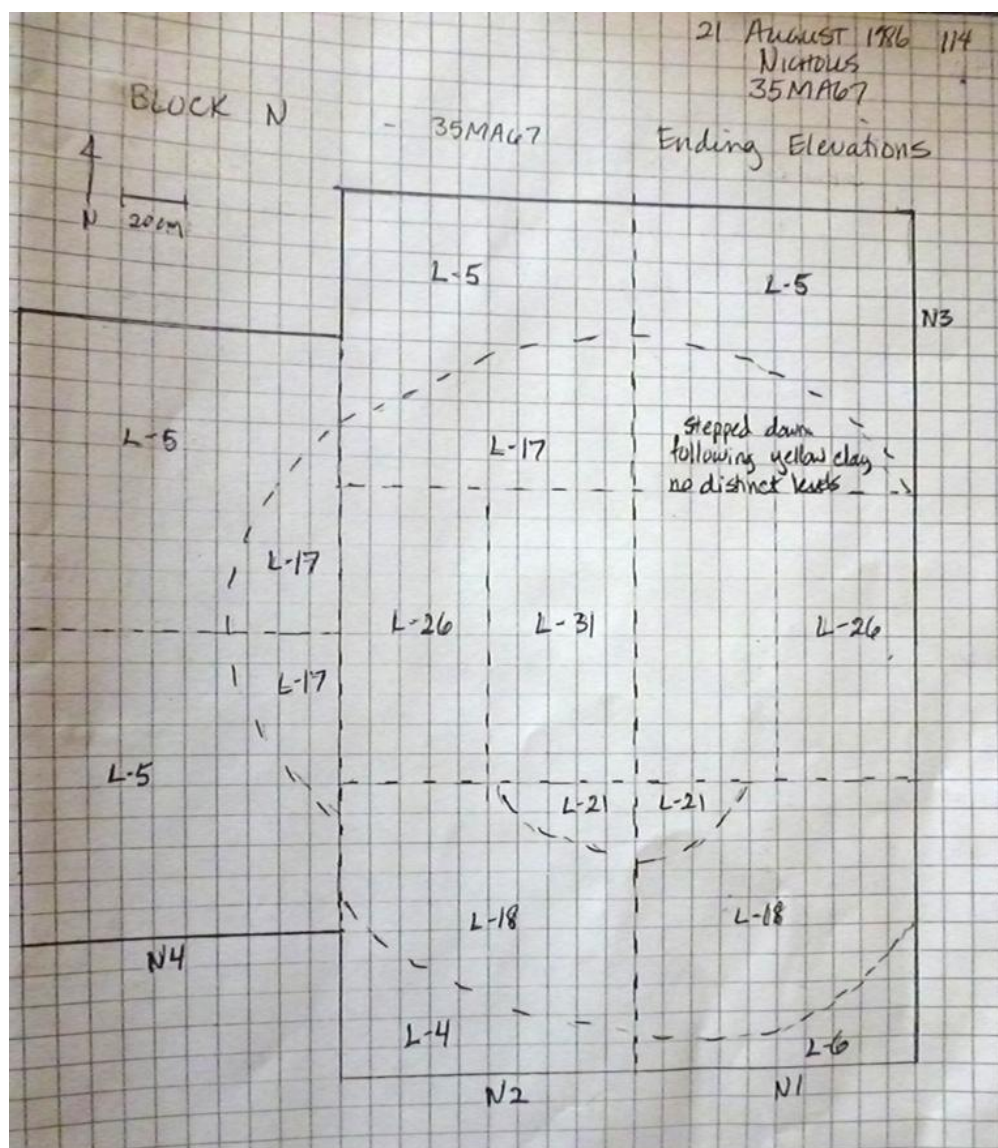 21 August 1986 114
Nichols
35MA67
BLOCK N - 35MA67 Ending Elevations
N 20cm
L-5 L-5
N3
L-5
L-17
Stepped down
following yellow clay
no distinct levels
L-17
L-26 L-31 L-26
L-17
L-5
L-21 L-21
L-18 L-18
N4
L-4 L-6
N2 N1